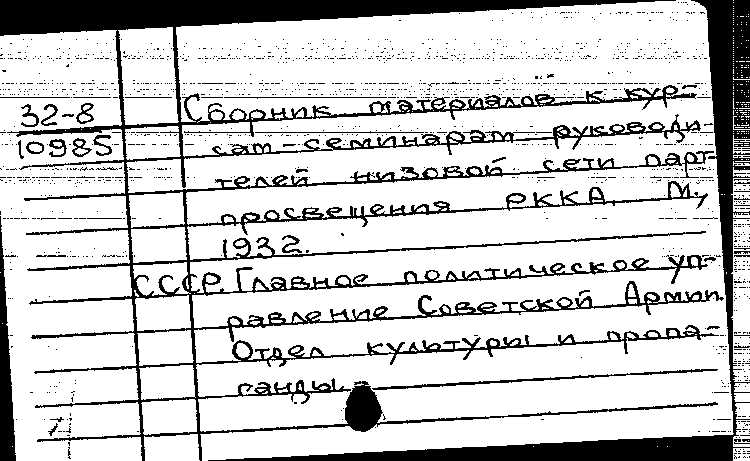 32-8
10985
Сборник материалов к кур=
сам-семинарам руководи-
телей низовой сети парт-
просвещения РККА. М.,
1932.
СССР. Главное политическое уп-
равление Советской Армии.
Отдел культуры и пропа-
ганды.